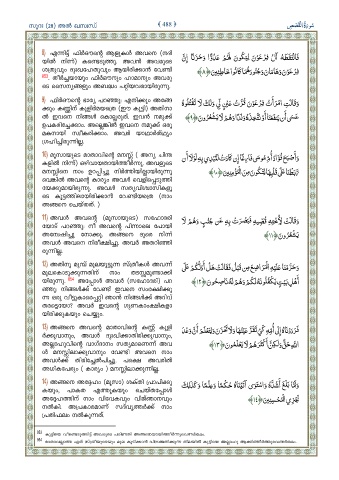 സൂറ: (28) അൽ ഖസ്വസ്
﴾ 488 ﴿
سُورَةُ القَصَص
8) എന്നിട്ട് ഫിർഔന്റെ ആളുകൾ അവനെ (നദിയിൽ നിന്ന്) കണ്ടെടുത്തു. അവൻ അവരുടെ
ശത്രുവും ദുഃഖഹേതുവും ആയിരിക്കാൻ വേണ്ടി
തീർച്ചയായും ഫിർഔനും ഹാമാനും അവരുടെ സൈന്യങ്ങളും അബദ്ധം പറ്റിയവരായിരുന്നു.
فَالْتَقَطَهُ آلُ فِرْعَوْنَ لِيَكُونَ لَهُمْ عَدُوًّا وَحَزَنًا إِنَّ
فِرْعَوْنَ وَهَامَانَ وَجُنُودَهُمَا كَانُوا خَاطِئِينَ ﴿٨﴾
9) ഫിർഔന്റെ ഭാര്യ പറഞ്ഞു: എനിക്കും അങ്ങേക്കും കണ്ണിന് കുളിർമയത്രെ (ഈ കുട്ടി) അതിനാൽ ഇവനെ നിങ്ങൾ കൊല്ലരുത്. ഇവൻ നമുക്ക്
ഉപകരിച്ചേക്കാം. അല്ലെങ്കിൽ ഇവനെ നമുക്ക് ഒരു
മകനായി സ്വീകരിക്കാം. അവർ യാഥാർത്ഥ്യം
ഗ്രഹിച്ചിരുന്നില്ല.
وَقَالَتِ امْرَأَتُ فِرْعَوْنَ قُرَّتُ عَيْنٍ لِّي وَلَكَ لَا تَقْتُلُوهُ
عَسَى أَن يَنفَعَنَا أَوْ نَتَّخِذَهُ وَلَدًا وَهُمْ لَا يَشْعُرُونَ ﴿٩﴾
10) മൂസായുടെ മാതാവിന്റെ മനസ്സ് (അന്യ ചിന്തകളിൽ നിന്ന്) ഒഴിവായതായിത്തീർന്നു. അവളുടെ
മനസ്സിനെ നാം ഉറപ്പിച്ചു നിർത്തിയില്ലായിരുന്നുവെങ്കിൽ അവന്റെ കാര്യം അവൾ വെളിപ്പെടുത്തിയേക്കുമായിരുന്നു. അവൾ സത്യവിശ്വാസികളുടെ കൂട്ടത്തിലായിരിക്കാൻ വേണ്ടിയത്രെ (നാം
അങ്ങനെ ചെയ്തത്.)
وَأَصْبَحَ فُؤَادُ أُمِّ مُوسَى فَارِغًا إِن كَادَتْ لَتُبْدِي بِهِ لَوْلَا أَن
رَّبَطْنَا عَلَى قَلْبِهَا لِتَكُونَ مِنَ الْمُؤْمِنِينَ ﴿١٠﴾
11) അവൾ അവന്റെ (മൂസായുടെ) സഹോദരിയോട് പറഞ്ഞു: നീ അവന്റെ പിന്നാലെ പോയി
അന്വേഷിച്ചു നോക്കൂ. അങ്ങനെ ദൂരെ നിന്ന്
അവൾ അവനെ നിരീക്ഷിച്ചു. അവർ അതറിഞ്ഞിരുന്നില്ല.
وَقَالَتْ لِأُخْتِهِ قُصِّيهِ فَبَصُرَتْ بِهِ عَن جُنُبٍ وَهُمْ لَا
يَشْعُرُونَ ﴿١١﴾
12) അതിനു മുമ്പ് മുലയൂട്ടുന്ന സ്ത്രീകൾ അവന്ന്
മുലകൊടുക്കുന്നതിന് നാം തടസ്സമുണ്ടാക്കിയിരുന്നു. അപ്പോൾ അവൾ (സഹോദരി) പറഞ്ഞു: നിങ്ങൾക്ക് വേണ്ടി ഇവനെ സംരക്ഷിക്കുന്ന ഒരു വീട്ടുകാരെപ്പറ്റി ഞാൻ നിങ്ങൾക്ക് അറിവ്
തരട്ടെയോ? അവർ ഇവന്റെ ഗുണകാംക്ഷികളായിരിക്കുകയും ചെയ്യും.
وَحَرَّمْنَا عَلَيْهِ الْمَرَاضِعَ مِن قَبْلُ فَقَالَتْ هَلْ أَدُلُّكُمْ عَلَى
أَهْلِ بَيْتٍ يَكْفُلُونَهُ لَكُمْ وَهُمْ لَهُ نَاصِحُونَ ﴿١٢﴾
13) അങ്ങനെ അവന്റെ മാതാവിന്റെ കണ്ണ് കുളിർക്കുവാനും, അവൾ ദുഃഖിക്കാതിരിക്കുവാനും,
അല്ലാഹുവിന്റെ വാഗ്ദാനം സത്യമാണെന്ന് അവൾ മനസ്സിലാക്കുവാനും വേണ്ടി അവനെ നാം
അവൾക്ക് തിരിച്ചേൽപിച്ചു. പക്ഷെ അവരിൽ
അധികപേരും (കാര്യം) മനസ്സിലാക്കുന്നില്ല.
فَرَدَدْنَاهُ إِلَى أُمِّهِ كَيْ تَقَرَّ عَيْنُهَا وَلَا تَحْزَنَ وَلِتَعْلَمَ أَنَّ وَعْدَ
اللَّهِ حَقٌّ وَلَكِنَّ أَكْثَرَهُمْ لَا يَعْلَمُونَ ﴿١٣﴾
14) അങ്ങനെ അദ്ദേഹം (മൂസാ) ശക്തി പ്രാപിക്കുകയും, പാകത എത്തുകയും ചെയ്തപ്പോൾ
അദ്ദേഹത്തിന് നാം വിവേകവും വിജ്ഞാനവും
നൽകി. അപ്രകാരമാണ് സദ്‌വൃത്തർക്ക് നാം
പ്രതിഫലം നൽകുന്നത്.
وَلَمَّا بَلَغَ أَشُدَّهُ وَاسْتَوَى آتَيْنَاهُ حُكْمًا وَعِلْمًا وَكَذَلِكَ
نَجْزِي الْمُحْسِنِينَ ﴿١٤﴾